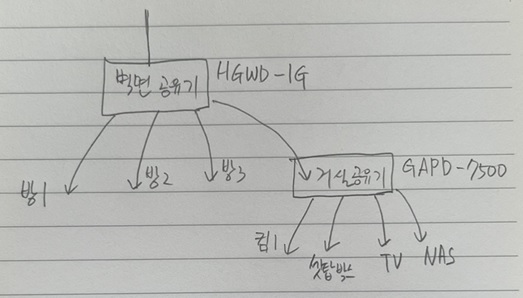 벽면 공유기 HGWD-1G
방1 방2 방3
거실공유기 GAPD-7500
컴1 셋탑박스 TV NAS